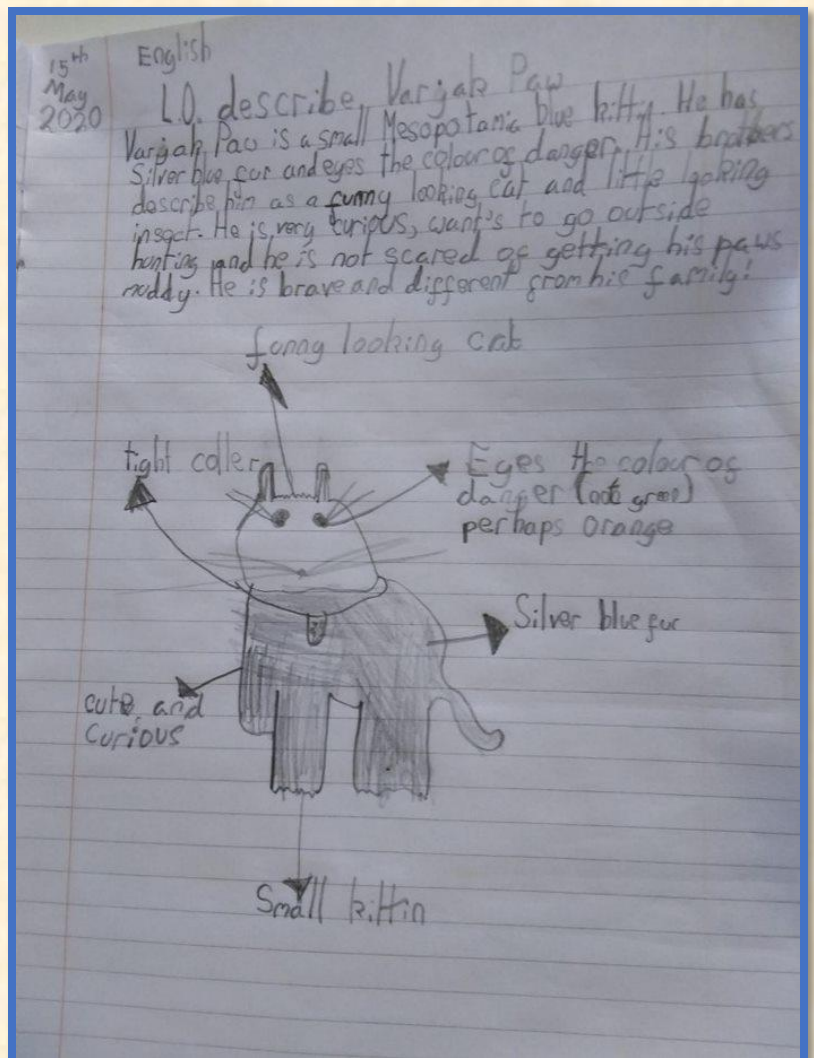 15th
May
2020
English
L.O. describe Varjak Paw
Varjak Paw is a small Mesopotamia blue kittin. He has
Silver blue fur and eyes the colour of danger. His brothers
describe him as a funny looking cat and little looking
insect. He is very curious, want's to go outside
hunting and he is not scared of getting his paws
muddy. He is brave and different from his family!
funny looking cat
tight coller
Eyes the colour of
danger (not green)
perhaps orange
Silver blue fur
cute and
curious
Small kittin